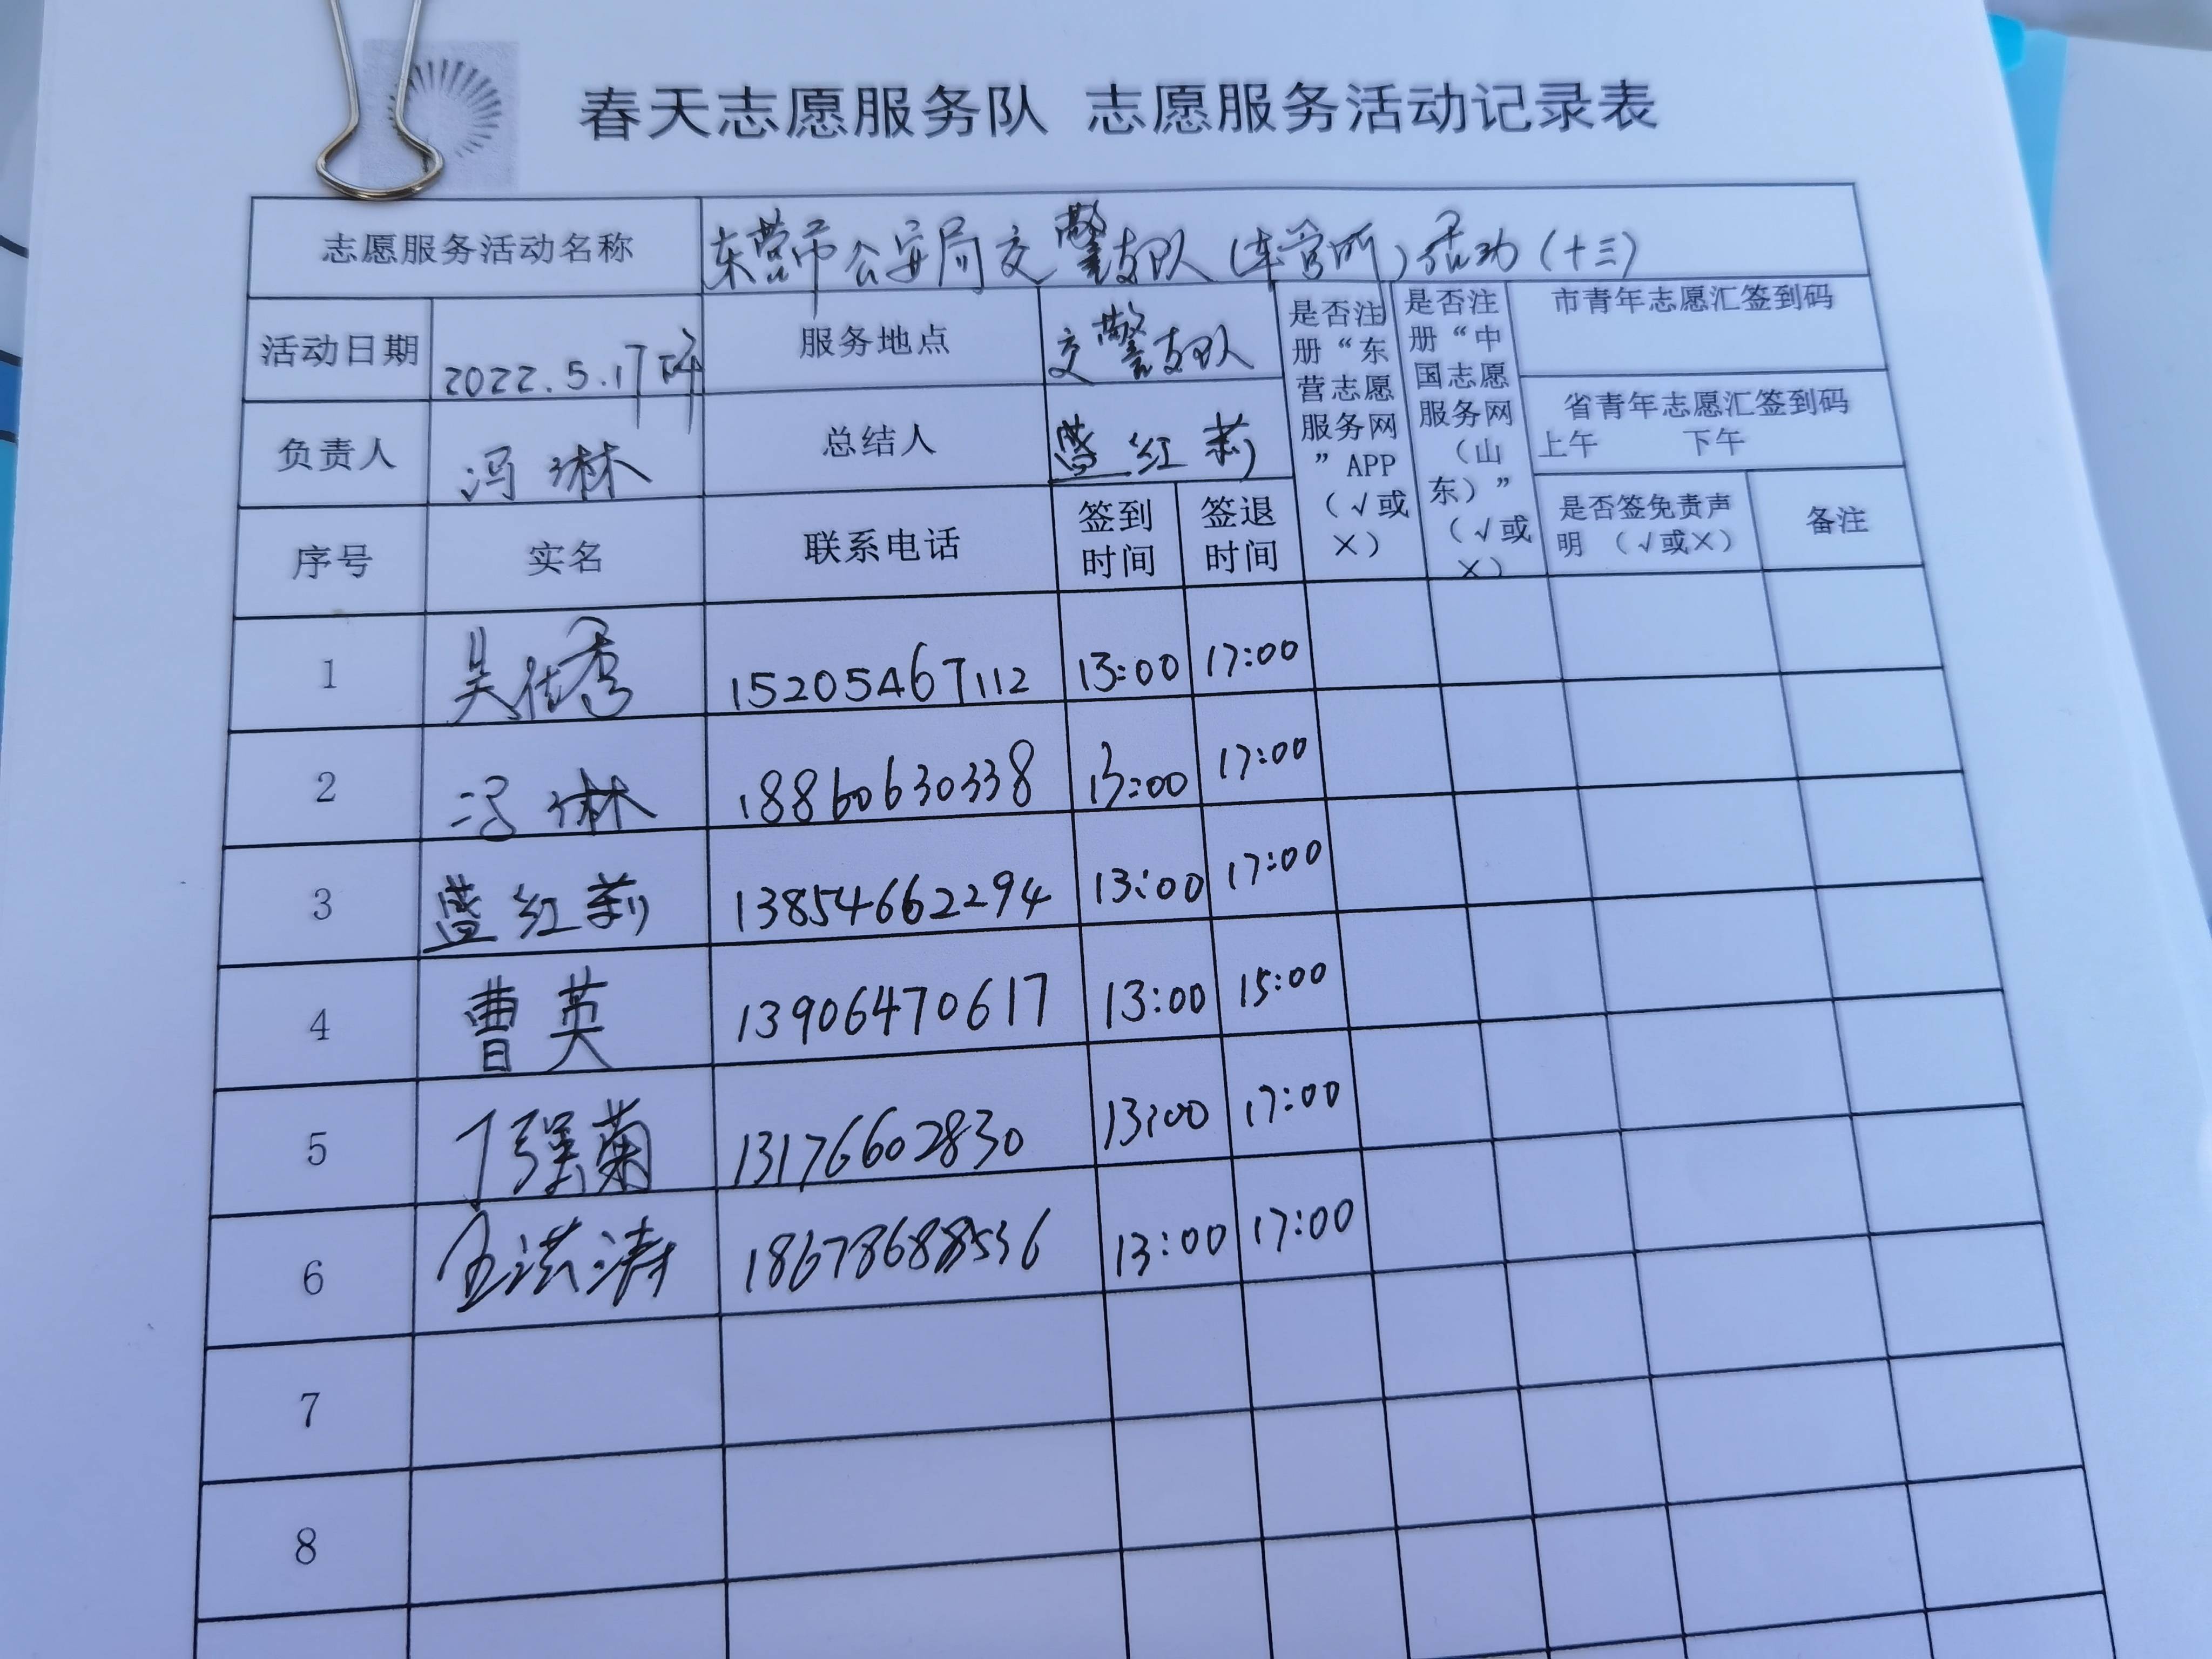 春天志愿服务队 志愿服务活动记录表
志愿服务活动名称 东营市公安局交警支队(车管所)活动(十三)
活动日期 2022.5.17下午 服务地点 交警支队
是否注册“东营志愿服务网”APP(√或×)
是否注册“中国志愿服务网(山东)”(√或×)
市青年志愿汇签到码
省青年志愿汇签到码
上午 下午
负责人 冯琳 总结人 红莉
序号 实名 联系电话 签到时间 签退时间 是否签免责声明 (√或×) 备注
1 吴秀 15205467112 13:00 17:00
2 冯琳 18860630338 13:00 17:00
3 红莉 13854662294 13:00 17:00
4 曹英 13906470617 13:00 15:00
5 丁强菊 13176602830 13:00 17:00
6 洪涛 18678688536 13:00 17:00
7
8